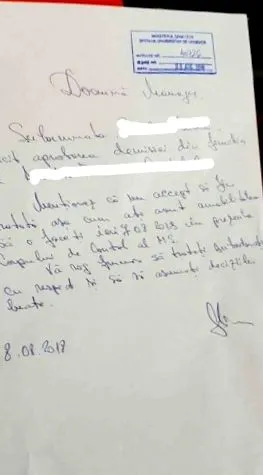 MINISTERUL SĂNĂTĂȚII
SPITALUL UNIVERSITAR DE URGENȚĂ
Doamnă Manager
Subsemnata
aprobarea demisiei din funcția
Menționez că nu accept să fiu
așa cum ați avut amabilitatea
să o faceți ieri 7.08.2018 în prezența
Corpului de Control al MS.
Vă rog frumos să tratați
cu respect și să vă asumați deciziile
luate.
8.08.2018